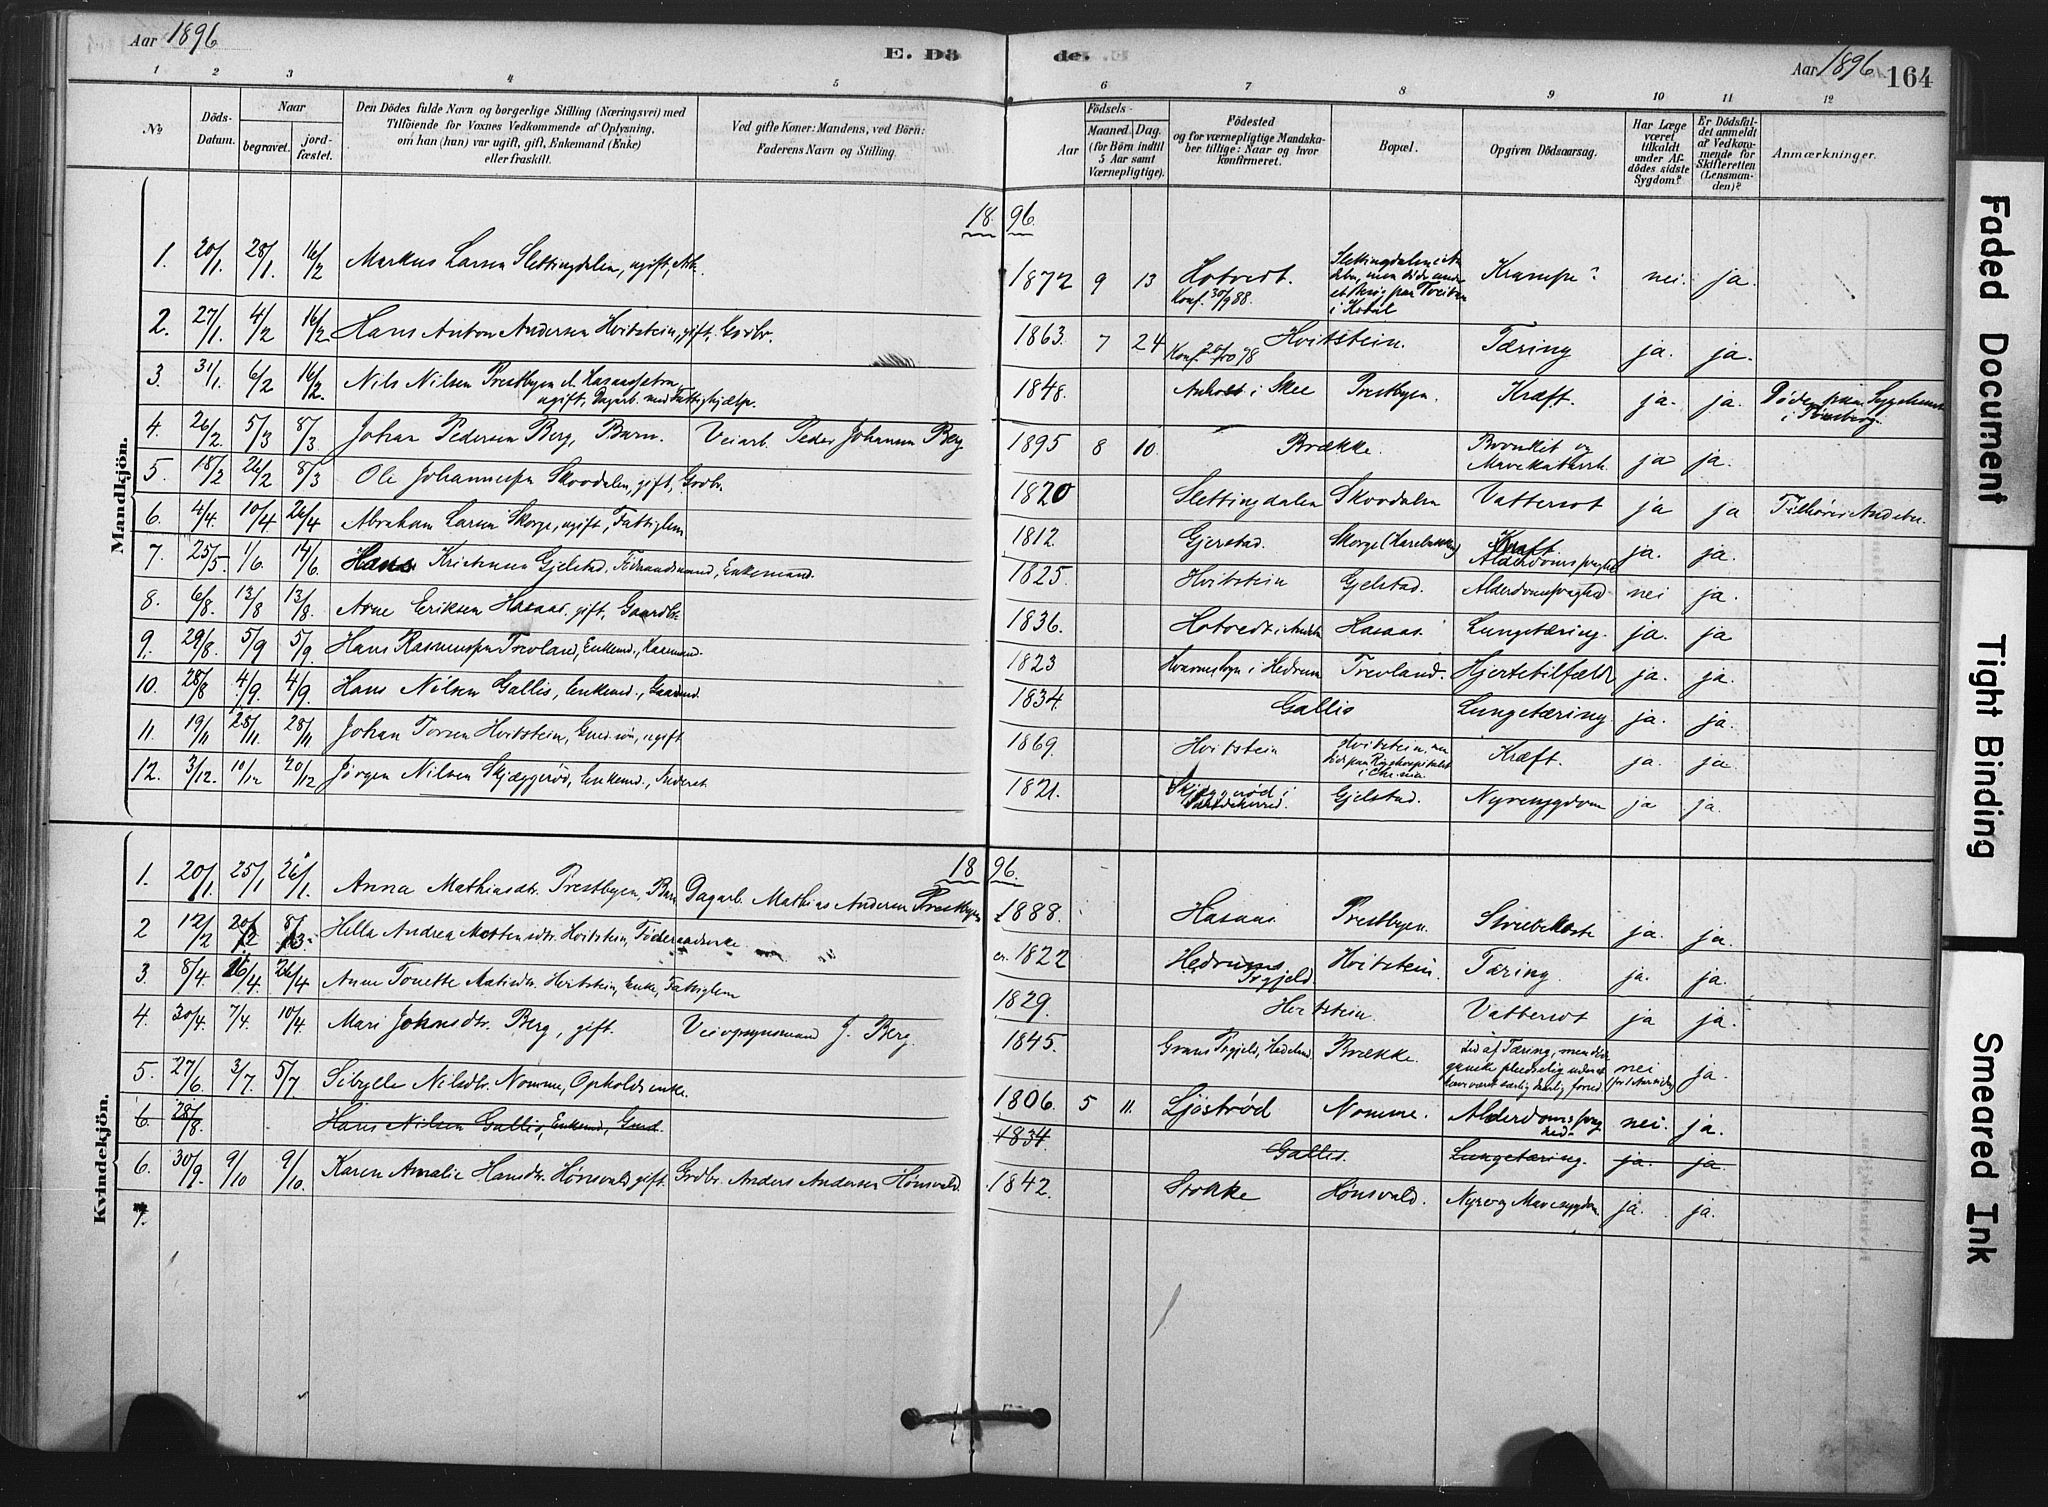 Aar 1896
E. Dö
de.
Aar 1896
164
1 2 3 4 5 6 7 8 9 10 11 12
No
Döds-Datum.
Naar
begravet.
jord-fæstet.
Den Dödes fulde Navn og borgerlige Stilling (Næringsvei) med
Tilföiende for Voxnes Vedkommende af Oplysning,
om han (han) var ugift, gift, Enkemand (Enke)
eller fraskilt.
Ved gifte Koner: Mandens, ved Börn:
Faderens Navn og Stilling.
Födsels-
Aar
Maaned. Dag.
(for Börn indtil
5 Aar samt
Værnepligtige).
Födested
og for værnepligtige Mandska-
ber tillige: Naar og hvor
konfirmeret.
Bopæl.
Opgiven Dödsaarsag.
Har Læge
været
tilkaldt
under Af-
dödes sidste
Sygdom?
Er Dödsfal-
det anmeldt
af Vedkom-
mende for
Skifteretten
(Lensman-
den)?
Anmærkninger.
Mandkjön.
18 96
1. 20/1 28/1 16/2 Markus Larsen Slettingdalen, ugift, Arb. 1872 9 13 Hotvedt. Konf. 30/9 88. Krampe? nei. ja.
2. 27/1 4/2 16/2 Hans Anton Andersen Hvitstein, gift, Grdbr. 1863. 7 24 Hvitstein. Tæring ja. ja.
3. 31/1 6/2 16/2 Nils Nilsen Prestbyen
ugift, Dagarb. med Fattighjælp. 1848. i Skee Prestbyen. Kræft. ja. ja.
i Tønsberg.
4. 26/2 5/3 8/3 Johan Pedersen Berg, Barn. Veiarb. Peder Johansen Berg 1895 8 10. Brække. Bronkit og
Mavekatarrh. ja ja.
5. 18/2 26/2 8/3 Ole Johannesen Skovdalen, gift, Grdbr. 1820 Slettingdalen Skovdalen Vattersot ja ja Tilhører Andebu.
6. 4/4. 10/4. 26/4 Abraham Larsen Skorge, ugift, Fattiglem 1812. Gjerstad. Skorge Alderdomssvaghed ja. ja.
7. 25/5. 1/6. 14/6 Hans Kristensen Gjelstad, Føderaadsmand, Enkemand. 1825. Hvitstein Gjelstad. Alderdomssvaghed nei ja.
8. 6/8. 13/8 13/8. Arne Eriksen Hasaas, gift, Gaardbr. 1836. Hotvedt i Andebu Hasaas. Lungetæring. ja. ja
9. 29/8. 5/9 5/9. Hans Rasmussen Trevland, Enkemd., 1823 i Hedrum Trevland. Hjertetilfælde ja. ja.
10. 28/8 4/9. 4/9 Hans Nilsen Gallis, Enkemd., Gaardmd. 1834 Gallis Lungetæring. ja. ja.
11. 19/11 28/11. 28/11 Johan Torsen Hvitstein, Grd.søn, ugift. 1869. Hvitstein Hvitstein, men
død paa Rigshospitalet
i Chr.nia Kræft. ja. ja.
12. 3/12. 10/12 20/12 Jørgen Nilsen Skjæggerød, Enkemd., Inderst. 1821. Skjæggerød i
Gjelstad. Nyresygdom ja ja.
Kvindekjön.
18 96.
1. 20/1. 25/1 26/1. Anna Mathiasdtr. Prestbyen, Barn Dagarb. Mathias Andersen Prestbyen 1888. Hasaas Prestbyen. Strubehoste ja. ja.
2 12/2 20/2 8/3. Helle Andrea Mortensdtr. Hvitstein, Føderaadsenke. cr. 1822 Hedrums
Prgjeld Hvitstein. Tæring. ja. ja.
3. 8/4. 16/4. 26/4 Anne Tonette Hvitstein, Enke, Fattiglem 1829. Hvitstein. Vattersot ja ja.
4. 30/4. 7/4. 10/4 Mari Johnsdtr. Berg, gift. Veiopsynsmand J. Berg. 1845. Grans Prgjeld, Hadeland. Brække. Led af Tæring, men døde
ganske pludselig uden at
have været særlig daarlig forud nei ja.
5. 27/6 3/7. 5/7 Sibylle Nilsdtr. Nomme, Opholdsenke. 1806. 5 11. Ljøstrød Nomme. Alderdomssvag
hed. nei. ja.
6. 28/8. Hans Nilsen Gallis, Enkemd., Grmd. 1834. Gallis. Lungetæring. ja. ja.
6. 30/9. 9/10 9/10. Karen Amalie Hansdtr. Hønsvald, gift. Grdbr. Anders Andersen Hønsvald. 1842. Stokke Hønsvald. Nyre og Mavesygdom. ja. ja.
7.
Faded Document
Tight Binding
Smeared Ink